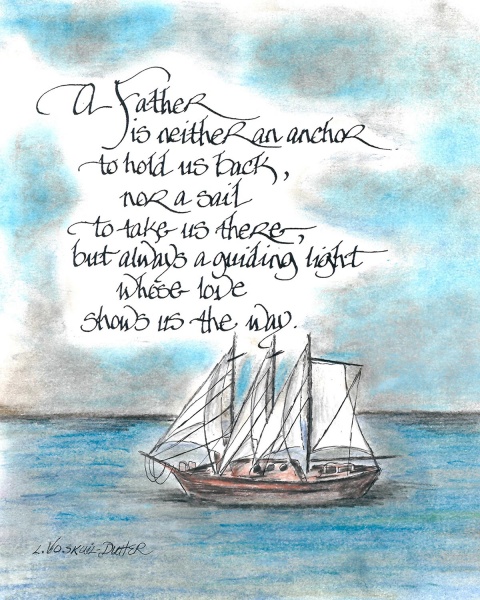 A Father
is neither an anchor
to hold us back,
nor a sail
to take us there,
but always a guiding light
whose love
shows us the way.
L. Voskuil-Dutter